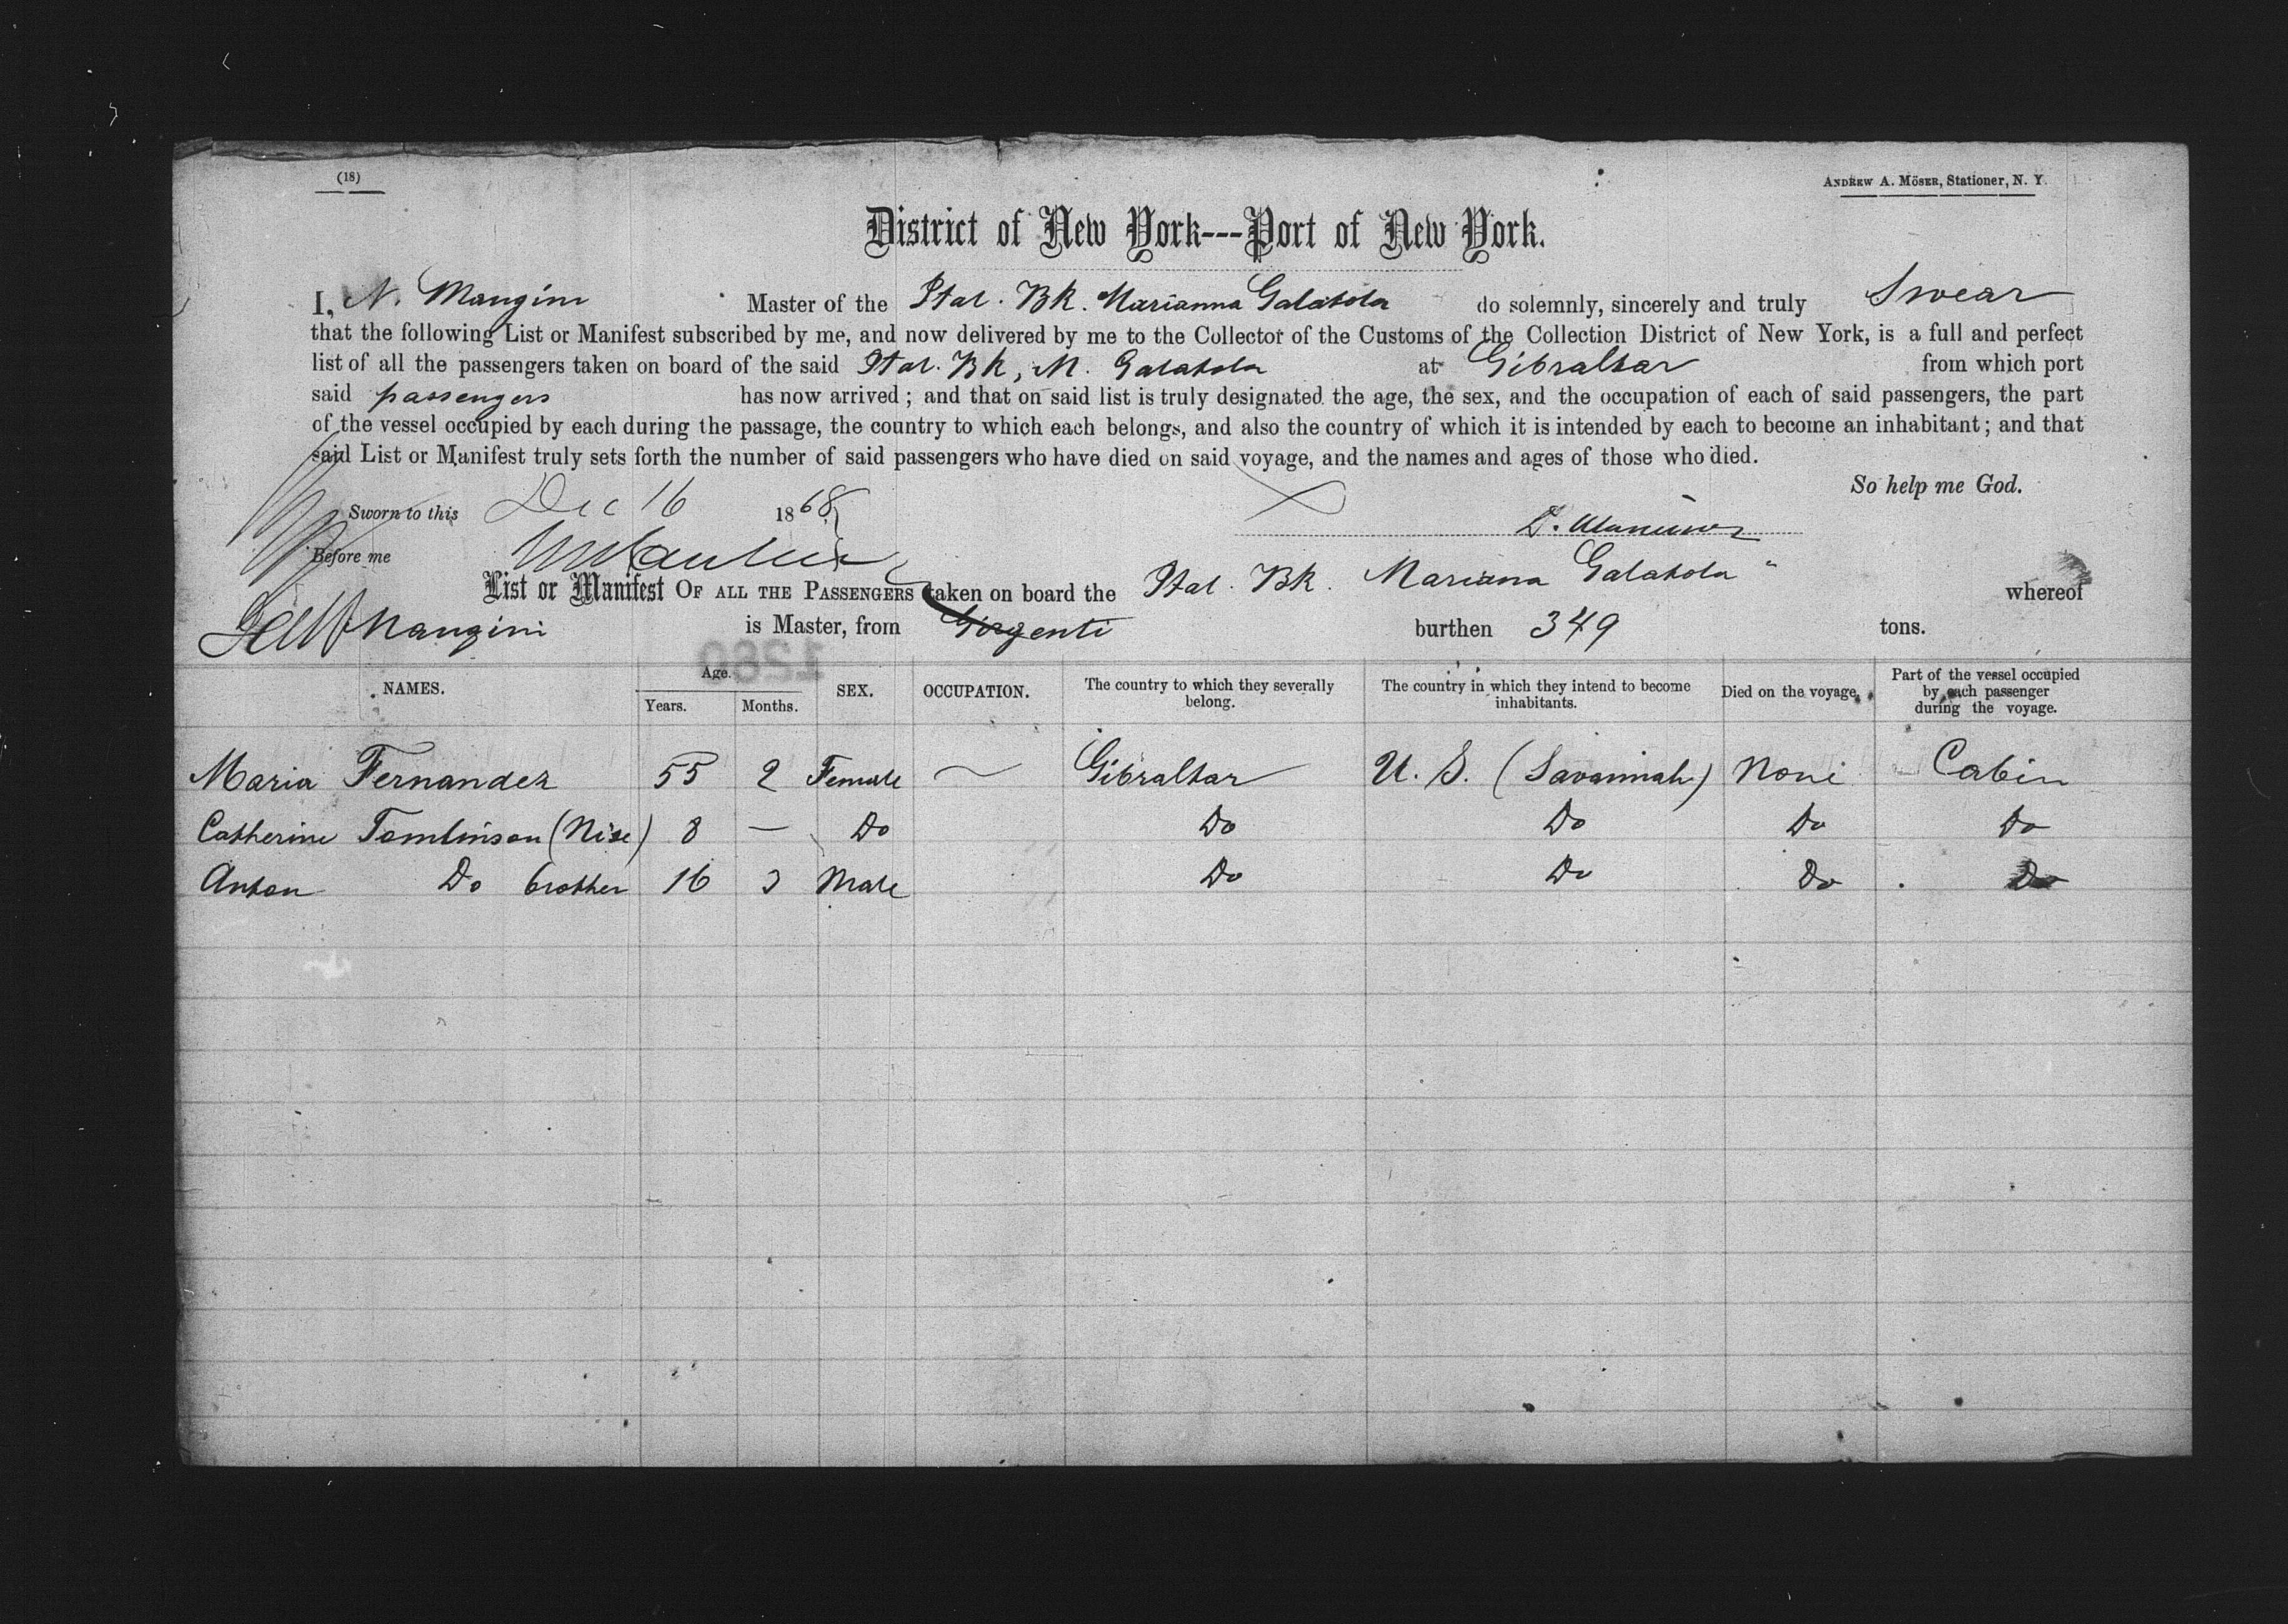 (18)
ANDREW A. MÖSER, Stationer, N. Y.
District of New York---Port of New York.
I, N. Mangini Master of the Ital. Bk. Marianna Galatola do solemnly, sincerely and truly Swear
that the following List or Manifest subscribed by me, and now delivered by me to the Collector of the Customs of the Collection District of New York, is a full and perfect
list of all the passengers taken on board of the said Ital. Bk, M. Galatola at Gibraltar from which port
said passengers has now arrived; and that on said list is truly designated the age, the sex, and the occupation of each of said passengers, the part
of the vessel occupied by each during the passage, the country to which each belongs, and also the country of which it is intended by each to become an inhabitant; and that
said List or Manifest truly sets forth the number of said passengers who have died on said voyage, and the names and ages of those who died.
So help me God.
Sworn to this Dec 16 1868
Before me
List or Manifest OF ALL THE PASSENGERS taken on board the Ital. Bk. Mariana Galatola" whereof
Mangini is Master, from Girgenti burthen 349 tons.
1280
NAMES. Age. Years. Months. SEX. OCCUPATION. The country to which they severally belong. The country in which they intend to become inhabitants. Died on the voyage. Part of the vessel occupied by each passenger during the voyage.
Maria Fernandez 55 2 Female ~ Gibraltar U. S. (Savannah) None Cabin
Catherine Tomlinson (Nise) 8 — Do Do Do Do Do
Anton Do brother 16 3 Male Do Do Do Do